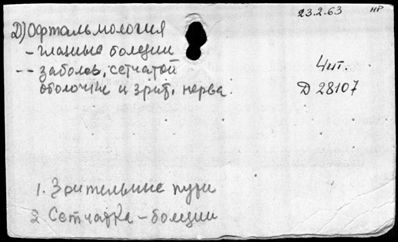 23.2.63 НР
2) Офтальмология
- глазные болезни
-- заболев. сетчатой
оболочки и зрит. нерва.
Чит.
D 28107
1. Зрительные пути
2. Сетчатка - болезни